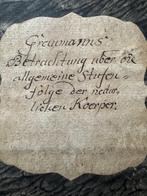 Greumanns
Betrachtung über die
allgemeine Stufen-
folge der natür-
lichen Koerper.